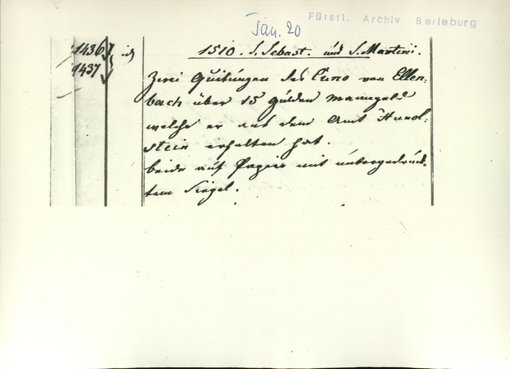 Jan. 20
Fürstl. Archiv Berleburg
1436
1437
id
1510. S. Sebast. und S. Martini.
Zwei Quitungen des Cuno von Ellen-
bach über 15 Gulden Manngeld
welche er aus dem Amt Hund-
stein erhalten hat.
beide auf Papier mit untergedruck-
tem Siegel.